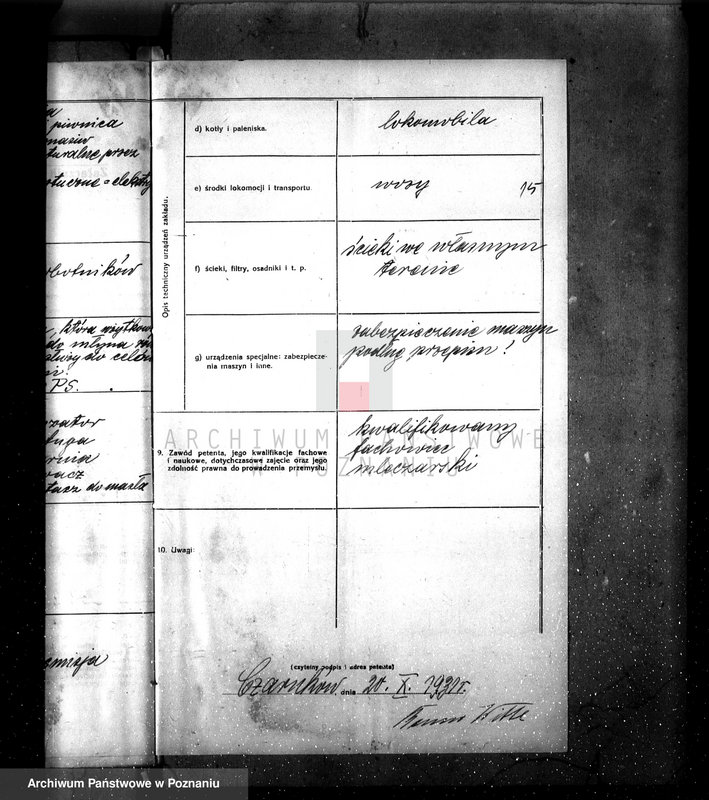 piwnica
turalne przez
botników
, która użytkow
do młyna
P.S.
zator
racz
tacz do masła
misja
Opis techniczny urządzeń zakładu.
d) kotły i paleniska.
lokomobila
e) środki lokomocji i transportu
wozy
15
f) ścieki, filtry, osadniki i t. p.
ścieki we własnym
terenie
g) urządzenia specjalne: zabezpiecze-
nia maszyn i inne.
zabezpieczenie maszyn
podług przepisu!
9. Zawód petenta, jego kwalifikacje fachowe
i naukowe, dotychczasowe zajęcie oraz jego
zdolność prawna do prowadzenia przemysłu.
kwalifikowany
fachowiec
mleczarski
ARCHIWUM PAŃSTWOWE
W POZNANIU
10. Uwagi:
(czytelny podpis i adres petenta)
Czarnków, dnia 20. X. 1931r.
Witte
Archiwum Państwowe w Poznaniu